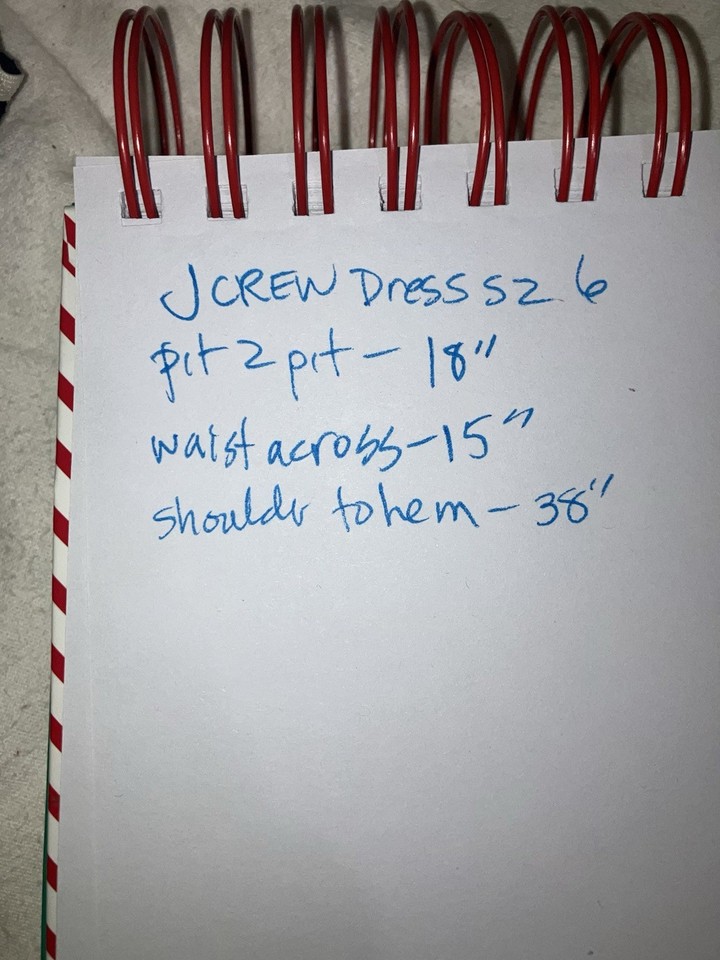 JCREW Dress sz 6
pit 2 pit - 18"
waist across - 15"
shoulder to hem - 38"